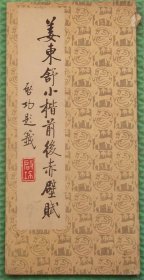 姜東舒小楷前後赤壁賦
啓功題籤